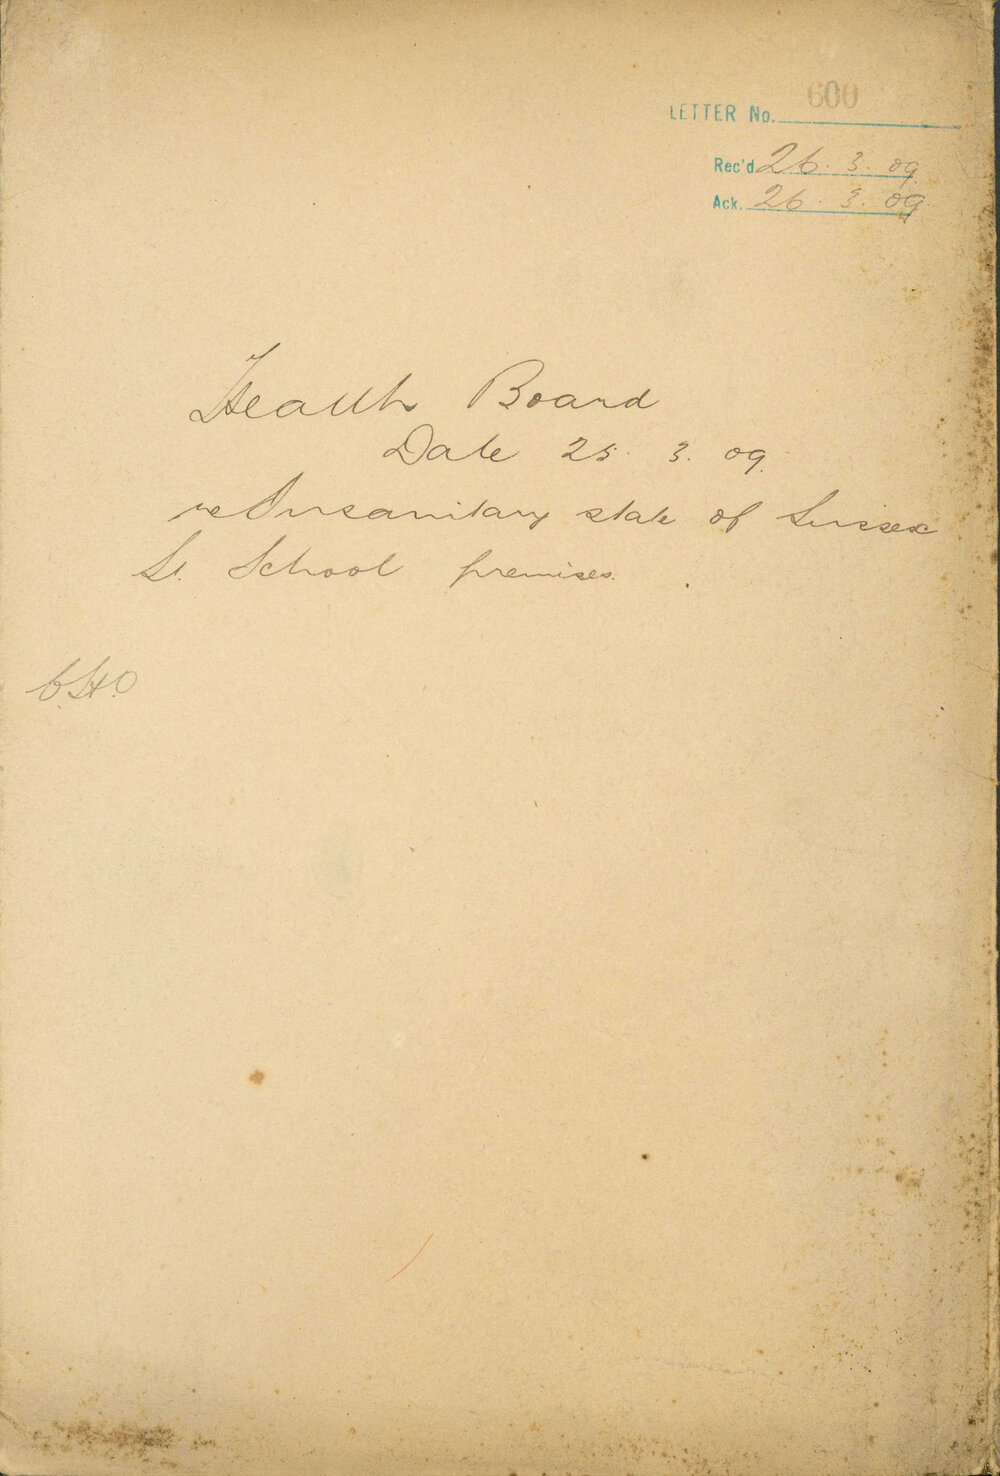 LETTER No. 600
Rec'd 26. 3. 09
Ack. 26. 3. 09
Health Board
Date 25. 3. 09.
re Insanitary state of Sussex
St. School premises.
C.H.O